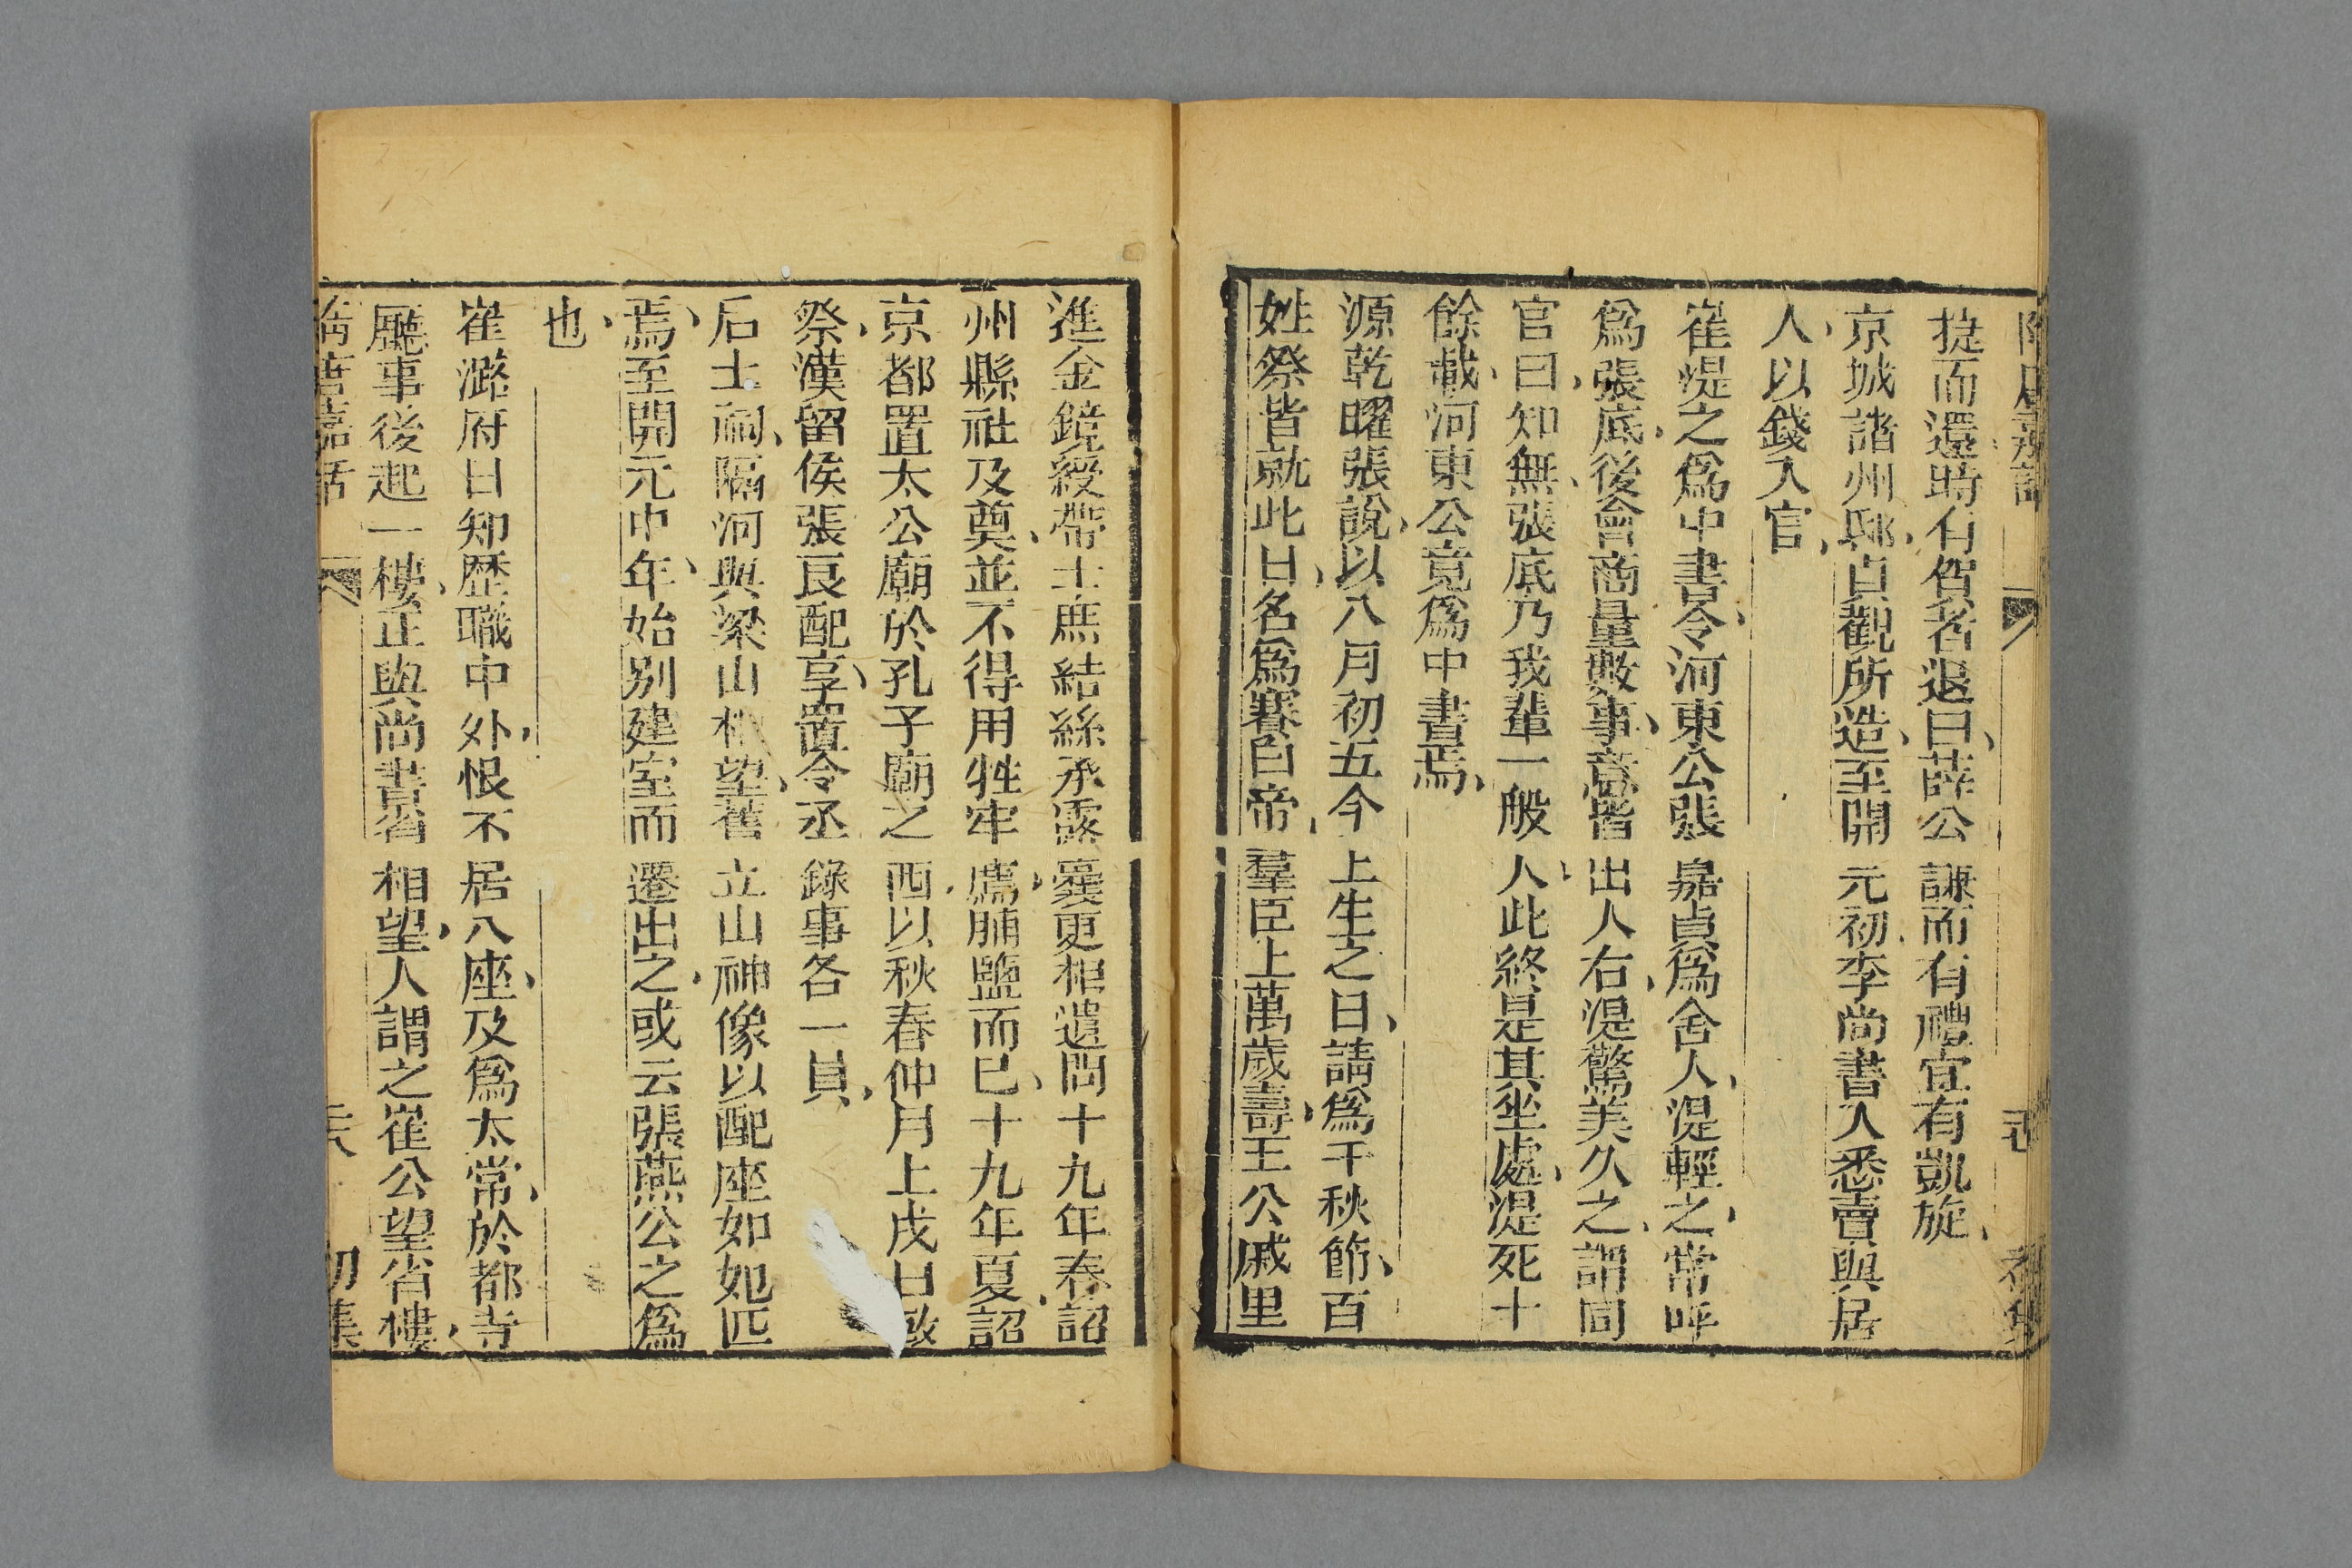 隋唐嘉話
捷而還時有賀者退曰薛公謙而有禮宜有凱旋
京城諸州邸貞觀所造至開元初李尚書入悉賣與居
人以錢入官
崔湜之爲中書令河東公張嘉貞爲舍人湜輕之常呼
爲張底後會商量數事意皆出人右湜驚美久之謂同
官曰知無張底乃我輩一般人此終是其坐處湜死十
餘載河東公竟爲中書焉
源乾曜張說以八月初五今上生之日請爲千秋節百
姓祭皆就此日名爲賽白帝羣臣上萬歲壽王公戚里
進金鏡綬帶士庶結絲承露囊更相遺問十九年春詔
州縣社及奠並不得用牲牢薦脯鹽而已十九年夏詔
京都置太公廟於孔子廟之西以秋春仲月上戌日
祭漢留侯張良配享置令丞錄事各一員
后土祠隔河與梁山相望舊立山神像以配座如妃匹
焉至開元中年始别建室而遷出之或云張燕公之爲
也
崔潞府日知歷職中外恨不居八座及爲太常於都寺
廳事後起一樓正與尚書省相望人謂之崔公望省樓
隋唐嘉話 初集